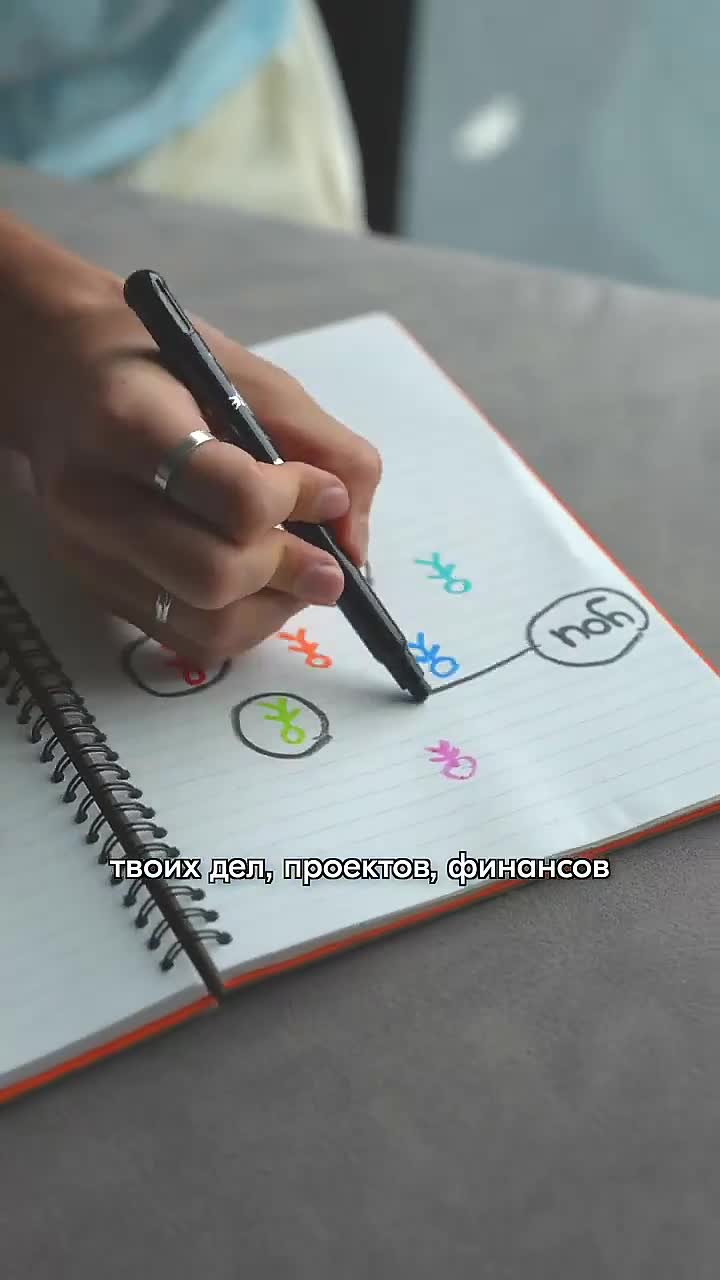 you
твоих дел, проектов, финансов